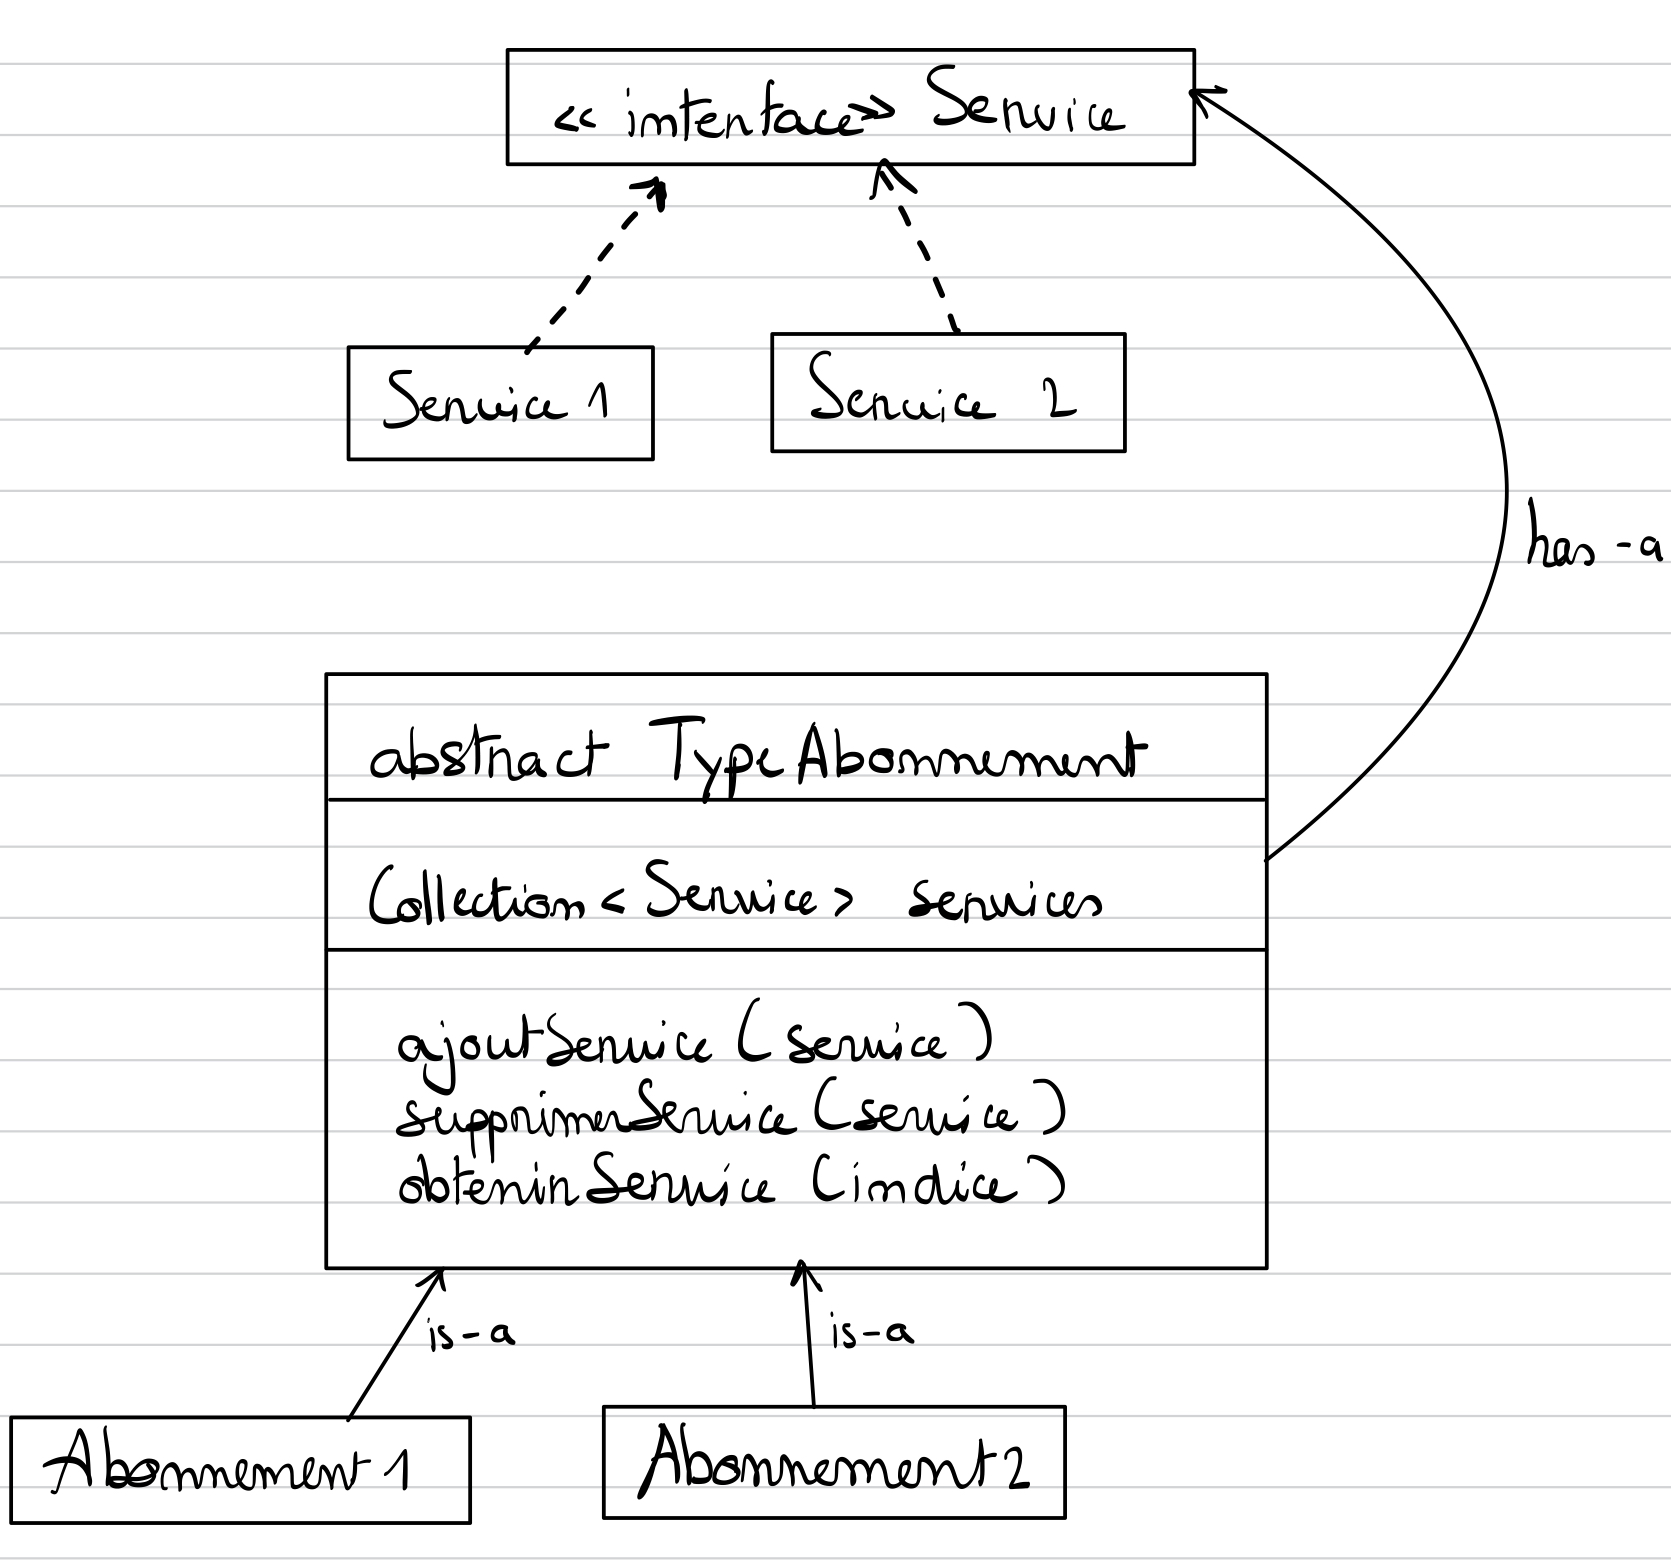 << interface >> Service
Service 1
Service 2
has-a
abstract TypeAbonnement
Collection<Service> services
ajoutService (service)
supprimerService (service)
obtenirService (indice)
is-a
is-a
Abonnement 1
Abonnement 2